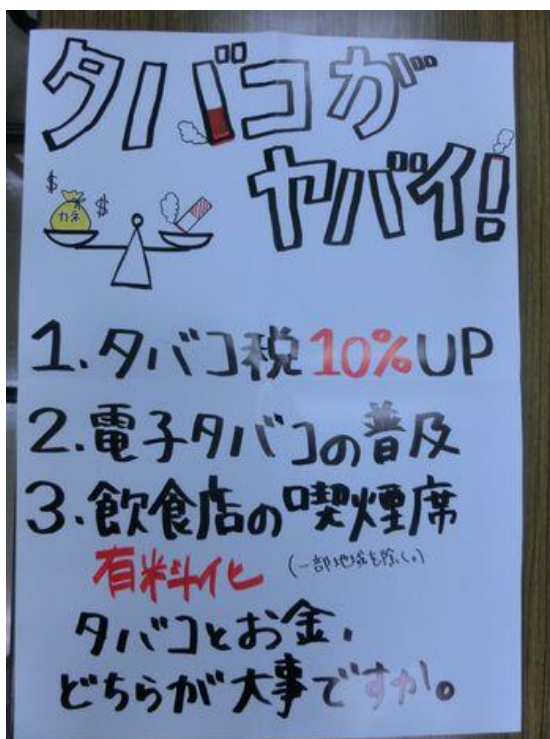 タバコが
ヤバイ!
$
$
カネ
1.タバコ税10%UP
2.電子タバコの普及
3.飲食店の喫煙席
有料化
(一部地域を除く。)
タバコとお金、
どちらが大事ですか。